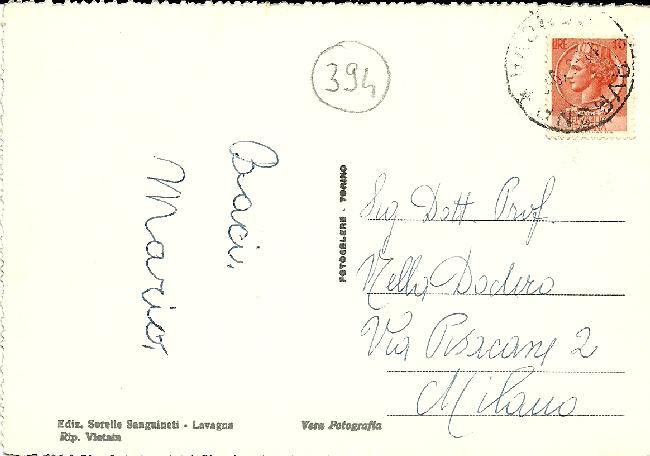 394
Baci,
Mario,
FOTOCELERE - TORINO
Sig. Dott. Prof.
Nella Dodero
Via Pisacane 2
Milano
Ediz. Sorelle Sanguineti - Lavagna
Rip. Vietata
Vera Fotografia
LIRE 10